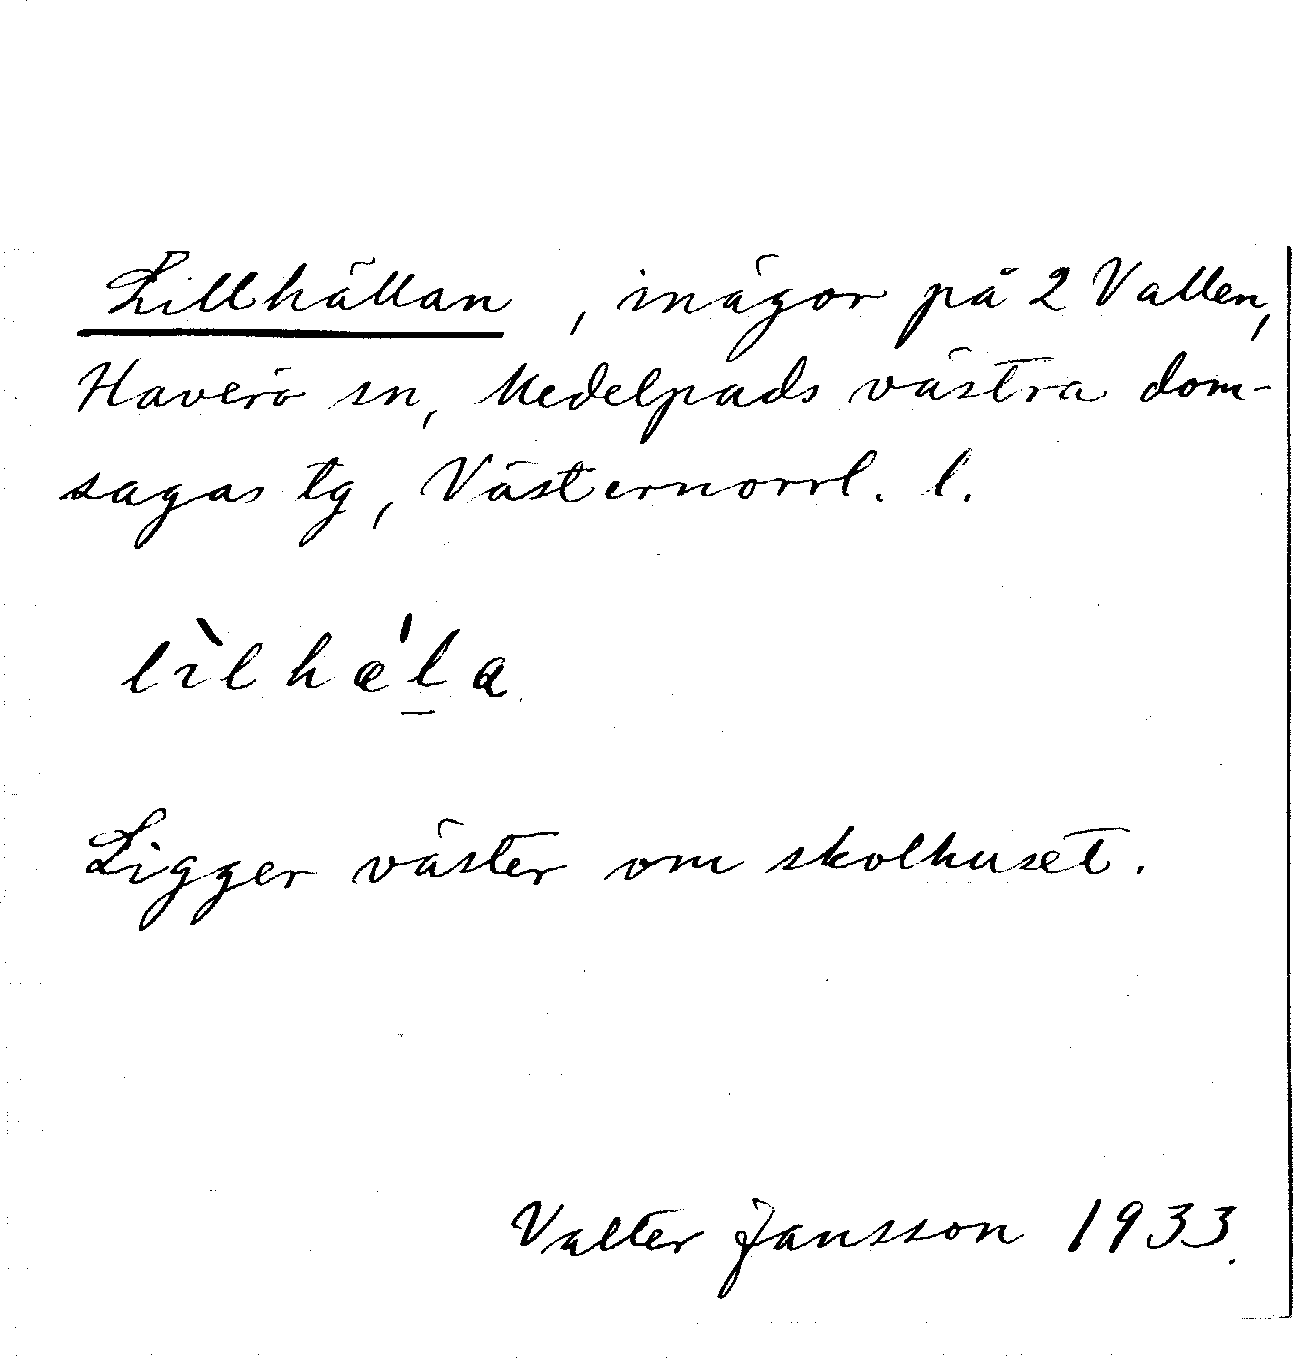 Lillhällan, inägor på 2 Vallen,
Haverö sn, Medelpads västra dom-
sagas tg, Västernorrl. l.
lìlhæ'l̲a
Ligger väster om skolhuset.
Valter Jansson 1933.